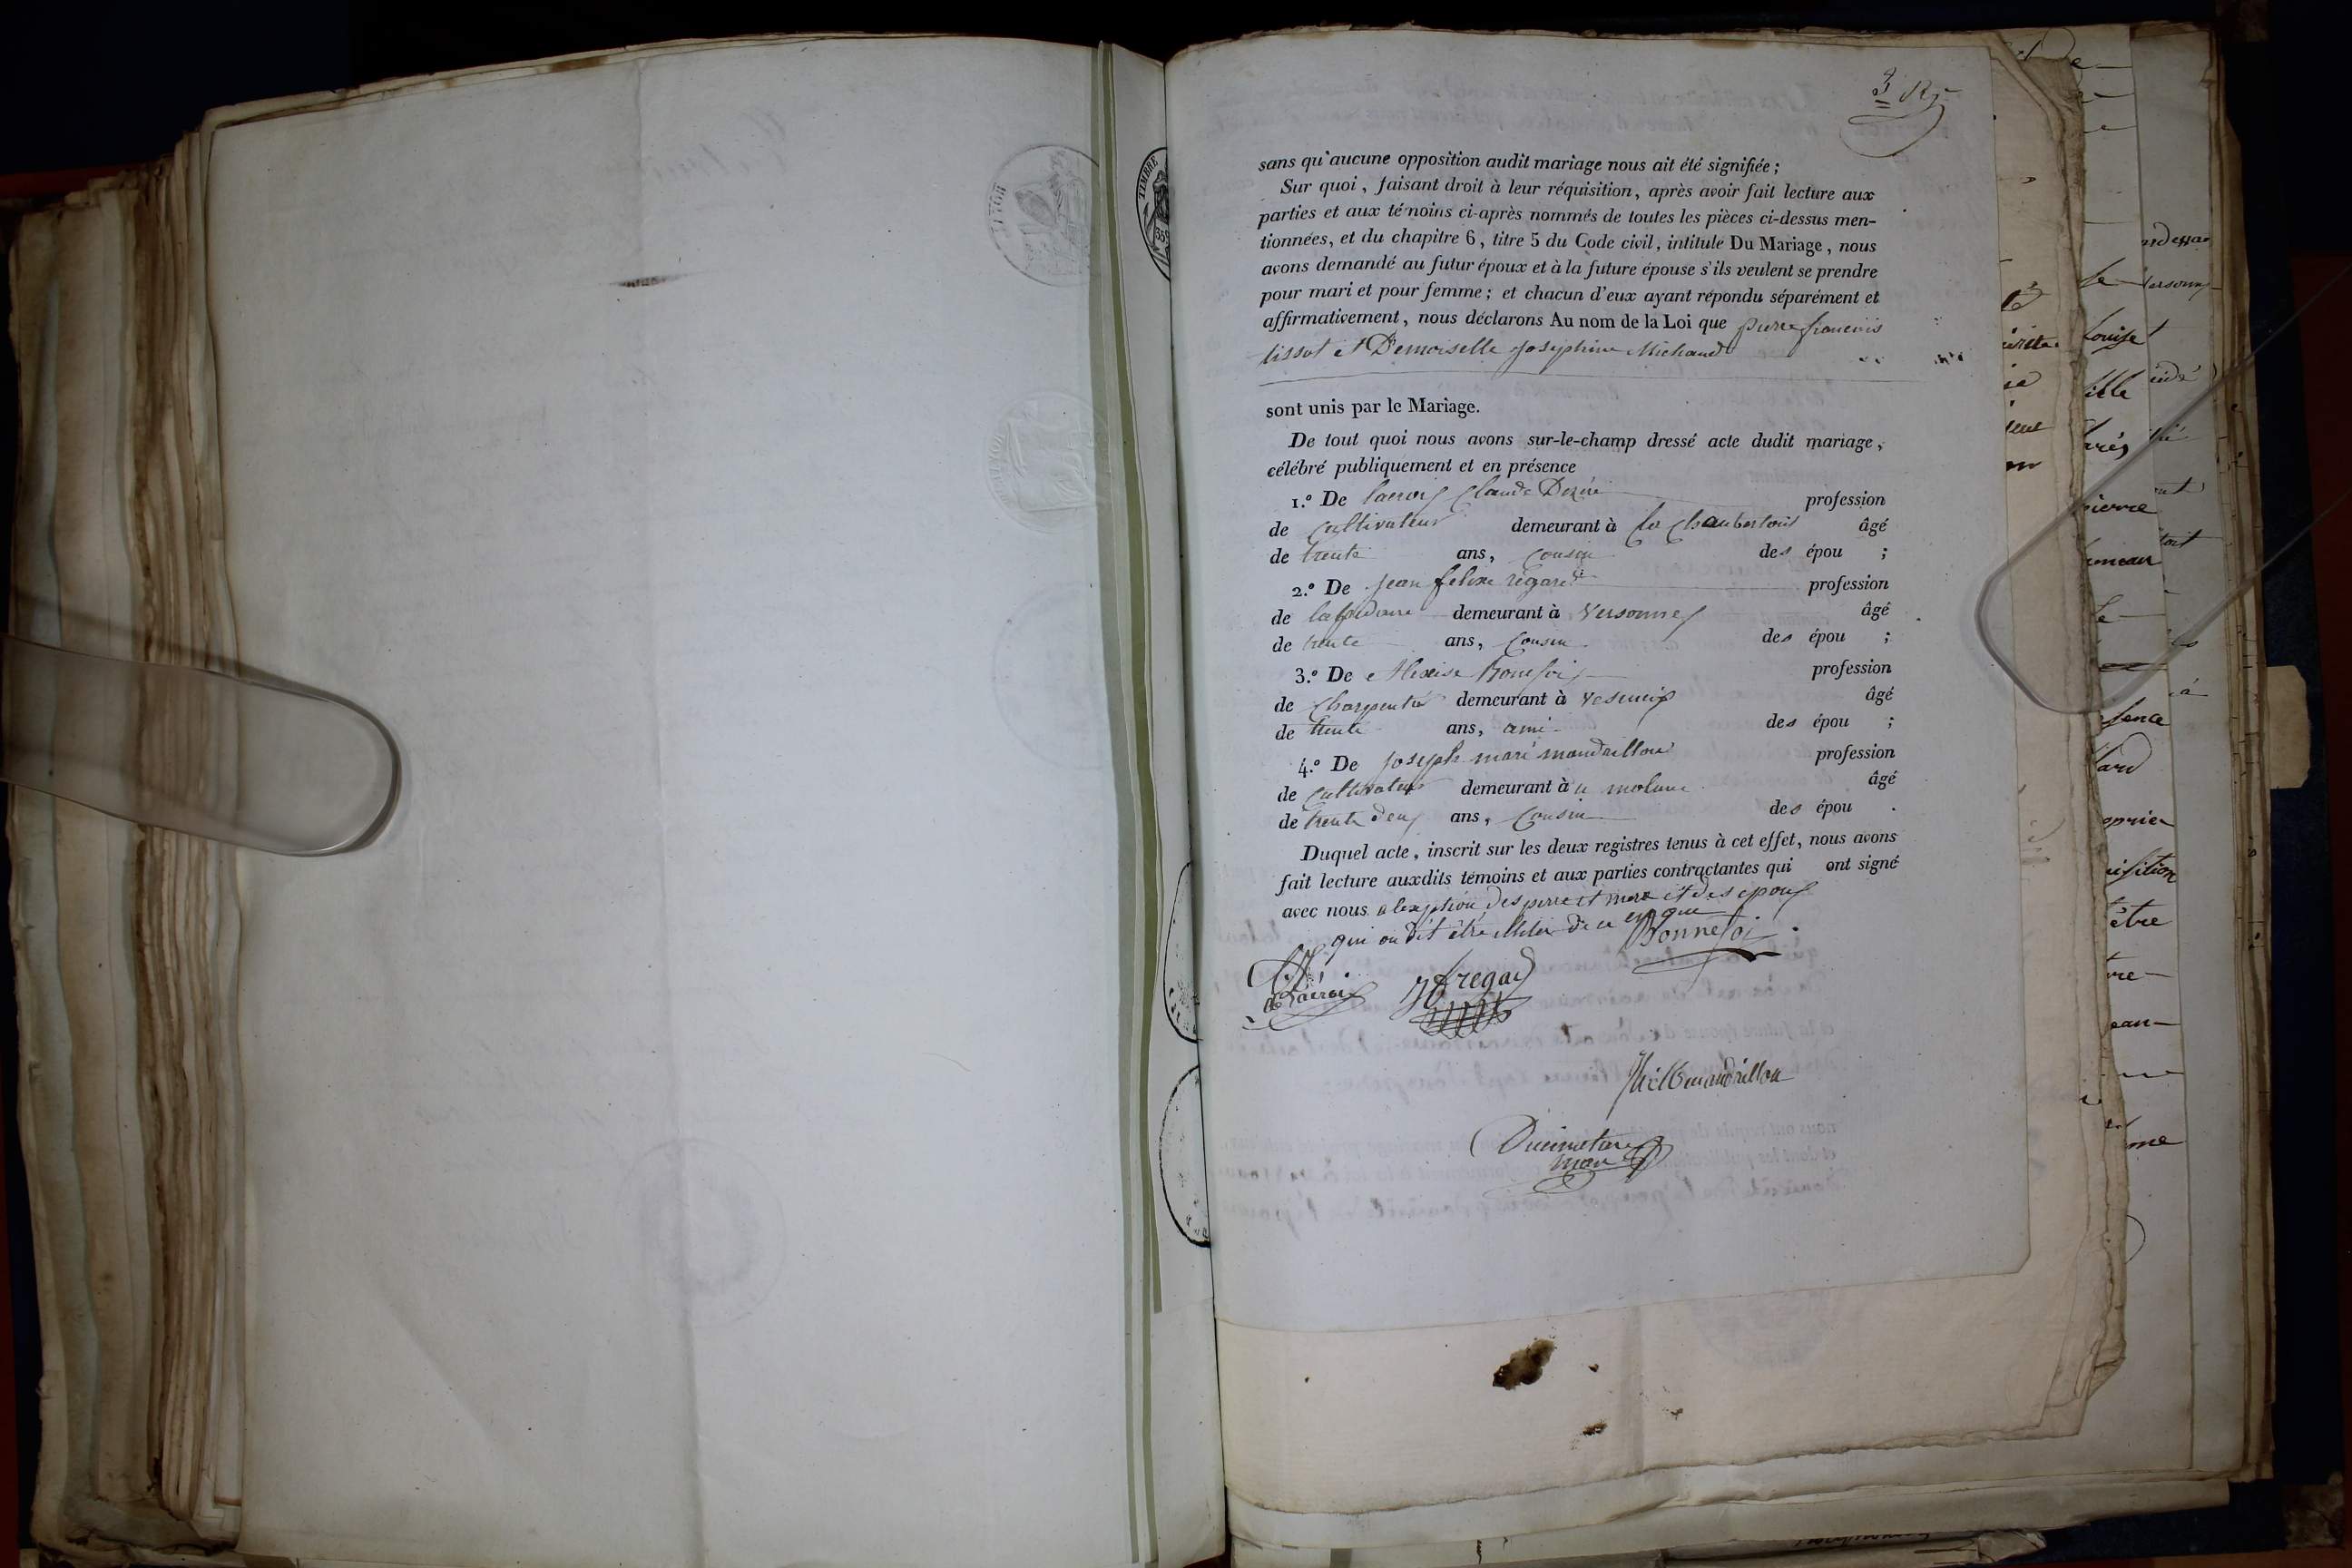 TIMBRE
3 R
sans qu'aucune opposition audit mariage nous ait été signifiée ;
Sur quoi, faisant droit à leur réquisition, après avoir fait lecture aux
parties et aux témoins ci-après nommés de toutes les pièces ci-dessus men-
tionnées, et du chapitre 6, titre 5 du Code civil, intitulé Du Mariage, nous
avons demandé au futur époux et à la future épouse s'ils veulent se prendre
pour mari et pour femme ; et chacun d'eux ayant répondu séparément et
affirmativement, nous déclarons Au nom de la Loi que pierre francois
tissot et Demoiselle Josephine Michaud
sont unis par le Mariage.
De tout quoi nous avons sur-le-champ dressé acte dudit mariage,
célébré publiquement et en présence
1.º De lacroix Claude Deziré profession
de Cultivateur demeurant à la Chaubertois âgé
de trente ans, Cousin des épou ;
2.º De jean felixe regard profession
de lapidaire demeurant à Versonnex âgé
de trente ans, Cousin des épou ;
3.º De Alexise Bonefoix profession
de Charpentié demeurant à âgé
de trente ans, ami des épou ;
4.º De joseph marie mandrillon profession
de Cultivateur demeurant à molune âgé
de trente deux ans, Cousin des épou .
Duquel acte, inscrit sur les deux registres tenus à cet effet, nous avons
fait lecture auxdits témoins et aux parties contractantes qui ont signé
avec nous a lexeption des perre et mere et des epoux
qui on dit être de ce enque
Bonnefoi
Lacroix
jf regard
mandrillon
Ducimetiere
maire